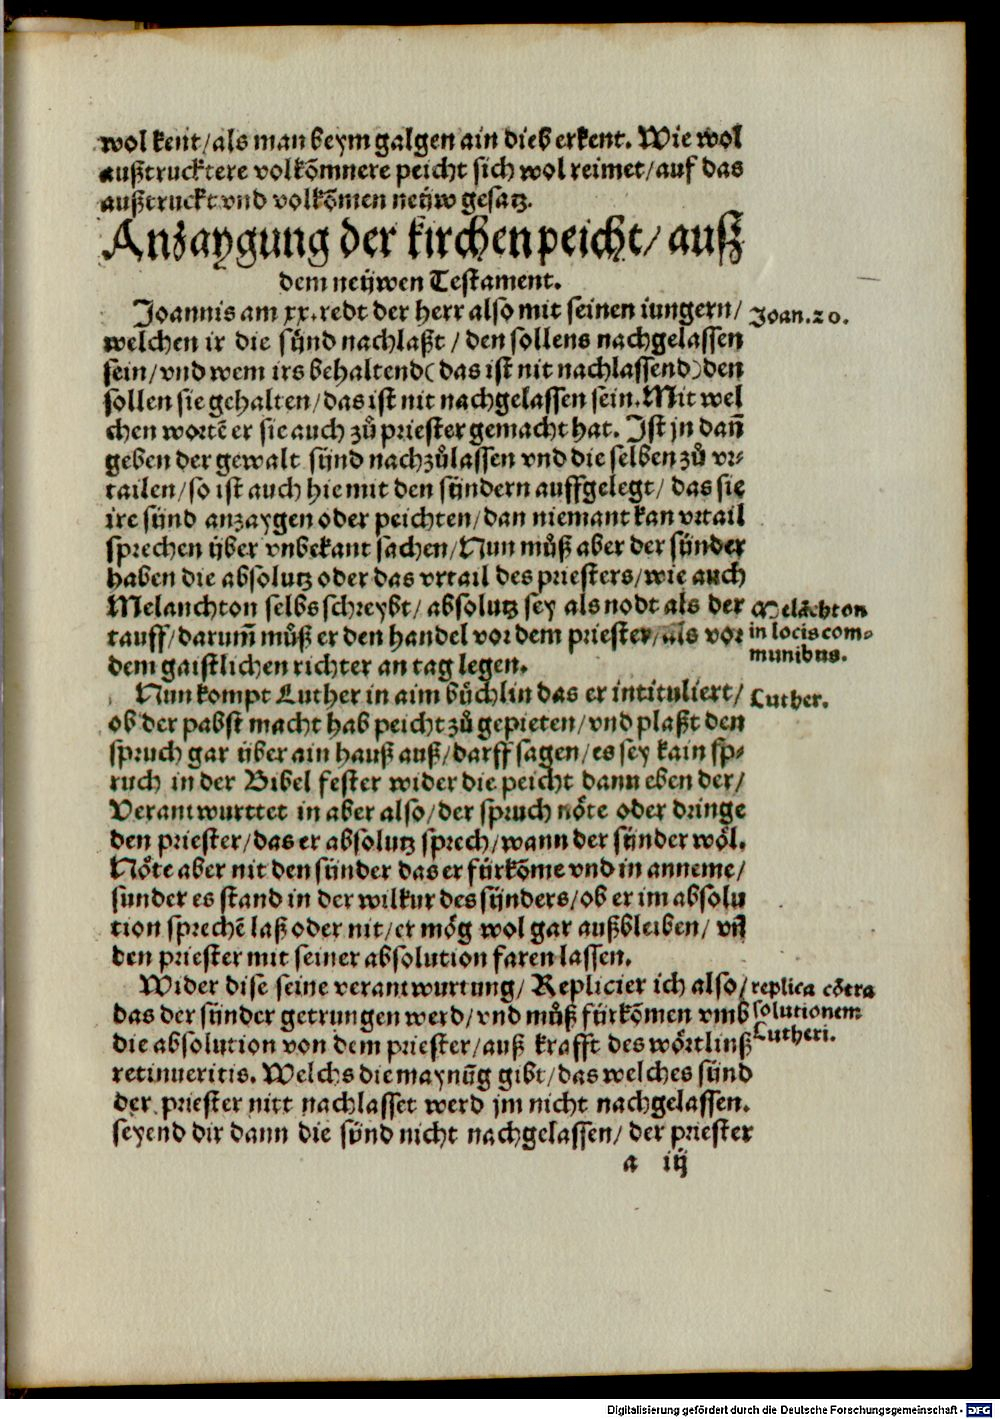 wol kent/als man beym galgen ain dieb erkent. Wie wol
außtrucktere volkõmnere peicht sich wol reimet/auf das
außtruckt vnd volkõmen neüw gesatz.
Anzaygung der kirchenpeicht/ auß
dem neüwen Testament.
Joannis am xx. redt der herr also mit seinen iungern/
Joan.20.
welchen ir die sünd nachlaßt / den sollens nachgelassen
sein/vnd wem irs behaltend(das ist nit nachlassend)den
sollen sie gehalten/das ist nit nachgelassen sein. Mit wel
chen wortẽ er sie auch zů priester gemacht hat. Ist jn dañ
geben der gewalt sünd nachzůlassen vnd die selben zů vr⸗
tailen/so ist auch hiemit den sündern auffgelegt/ das sie
ire sünd anzaygen oder peichten/dan niemant kan vrtail
sprechen über vnbekant sachen/Nun můß aber der sünder
haben die absolutz oder das vrtail des priesters/wie auch
Melanchton selbs schreybt/ absolutz sey als nodt als der
Melãchton
tauff/darum̃ můß er den handel vor dem priester/als vor
in locis com⸗
dem gaistlichen richter an tag legen.
munibus.
Nun kompt Luther in aim büchlin das er intituliert/
Luther.
ob der pabst macht hab peicht zů gepieten/vnd plaßt den
spruch gar über ain hauß auß/darff sagen/es sey kain sp⸗
ruch in der Bibel fester wider die peicht dann eben der/
Verantwurttet in aber also/der spruch nöte oder dringe
den priester/das er absolutz sprech/wann der sünder wöl.
Nöte aber nit den sünder das er fürkõme vnd in anneme/
sunder es stand in der wilkur des sünders/ob er im absolu
tion sprechẽ laß oder nit/er mög wol gar außbleiben/ vñ
den priester mit seiner absolution faren lassen.
Wider dise seine verantwurtung/ Replicier ich also/
replica cõtra
das der sünder getrungen werd/vnd můß fürkõmen vmb
solutionem
die absolution von dem priester/auß krafft des wörtlinß
Lutheri.
retinueritis. Welchs die maynũg gibt/das welches sünd
der priester nitt nachlasset werd jm nicht nachgelassen.
seyend dir dann die sünd nicht nachgelassen/ der priester
a iij
Digitalisierung gefördert durch die Deutsche Forschungsgemeinschaft - DFG